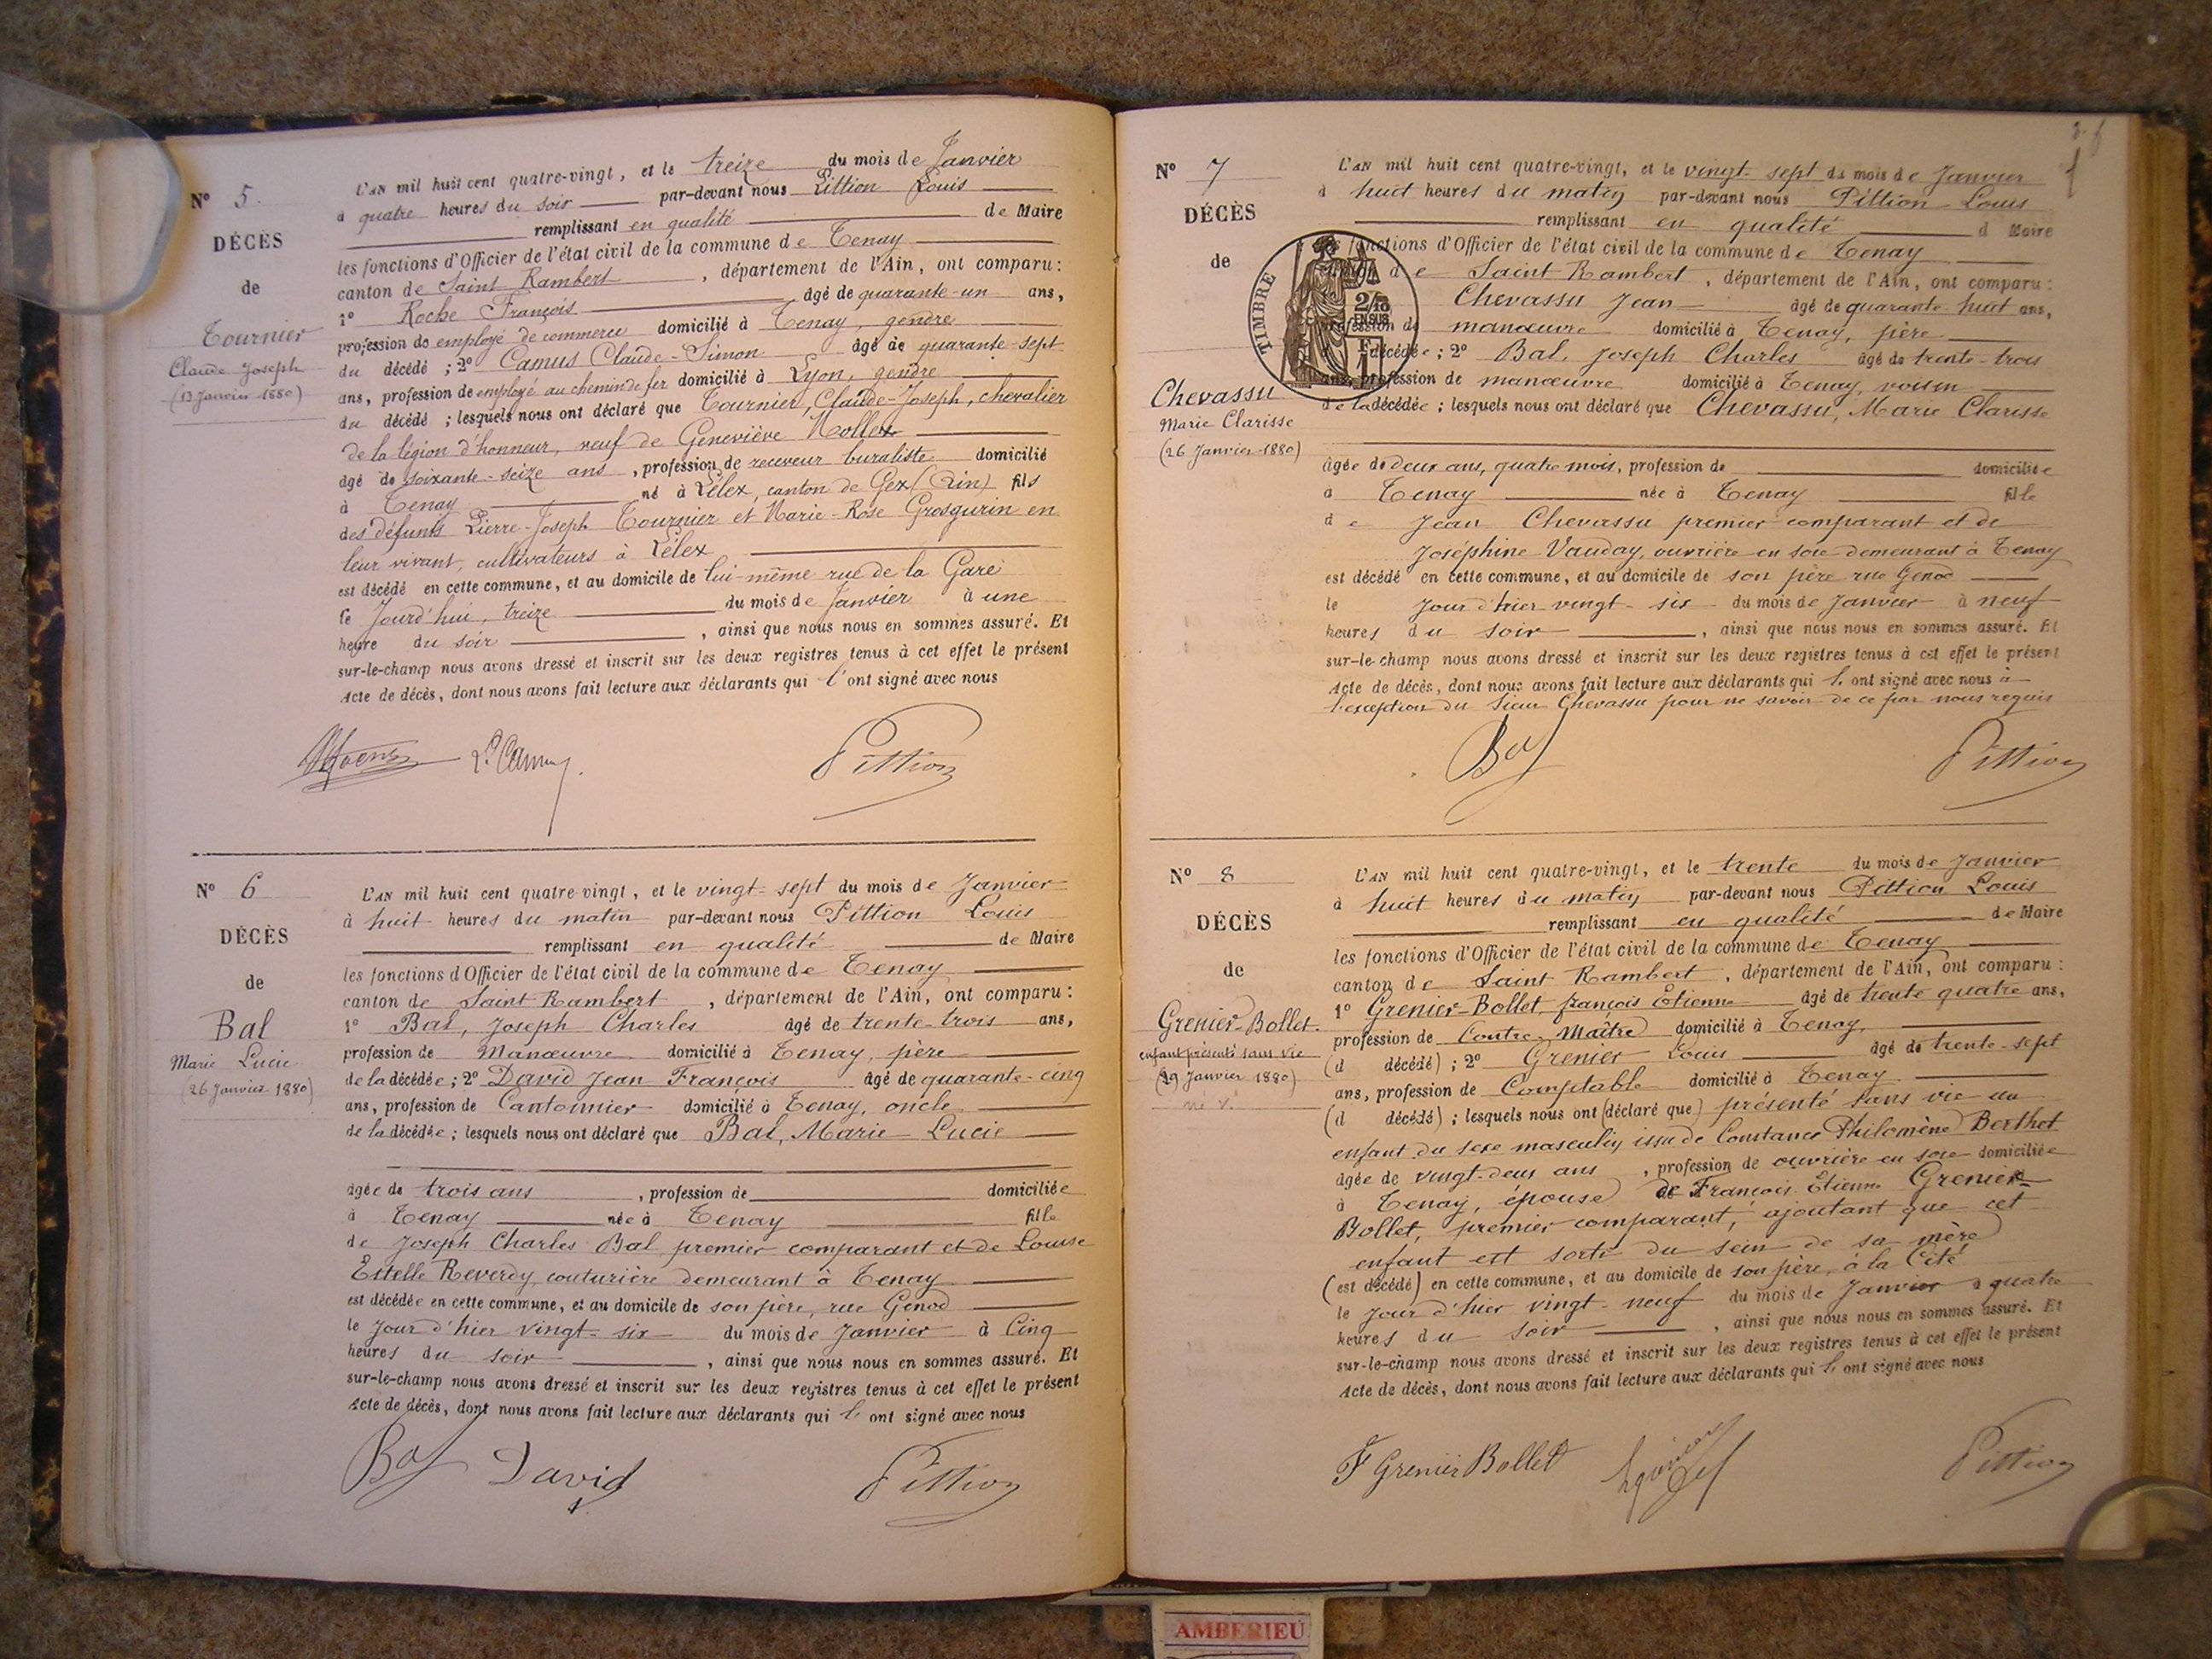 Nº 5.
DÉCÈS
de
Tournier
Claude Joseph
(13 Janvier 1880)
L'AN mil huit cent quatre-vingt, et le treize du mois de Janvier
à quatre heures du soir par-devant nous Pittion Louis
remplissant en qualité de Maire
les fonctions d'Officier de l'état civil de la commune de Tenay
canton de Saint Rambert, département de l'Ain, ont comparu:
1º Roche François âgé de quarante-un ans,
profession de employé de commerce domicilié à Tenay, gendre
du décédé ; 2º Camus Claude-Simon âgé de quarante-sept
ans, profession de employé au chemin de fer domicilié à Lyon, gendre
du décédé ; lesquels nous ont déclaré que Tournier, Claude-Joseph, chevalier
de la légion d'honneur, veuf de Geneviève Mollex
âgé de soixante-seize ans, profession de receveur buraliste domicilié
à Tenay né à Lélex, canton de Gex (Ain) fils
des défunts Pierre-Joseph Tournier et Marie-Rose Grosgurin en
leur vivant, cultivateurs à Lélex
est décédé en cette commune, et au domicile de lui-même rue de la Gare
le Jourd'hui, treize du mois de Janvier à une
heure du soir, ainsi que nous nous en sommes assuré. Et
sur-le-champ nous avons dressé et inscrit sur les deux registres tenus à cet effet le présent
Acte de décès, dont nous avons fait lecture aux déclarants qui l'ont signé avec nous
Camus Pittion
Nº 6
DÉCÈS
de
Bal
Marie Lucie
(26 Janvier 1880)
L'AN mil huit cent quatre-vingt, et le vingt-sept du mois de Janvier
à huit heures du matin par-devant nous Pittion Louis
remplissant en qualité de Maire
les fonctions d'Officier de l'état civil de la commune de Tenay
canton de Saint Rambert, département de l'Ain, ont comparu:
1º Bal, Joseph Charles âgé de trente-trois ans,
profession de Manœuvre domicilié à Tenay, père
de la décédée ; 2º David Jean François âgé de quarante-cinq
ans, profession de Cantonnier domicilié à Tenay, oncle
de la décédée ; lesquels nous ont déclaré que Bal, Marie Lucie
âgée de trois ans, profession de domiciliée
à Tenay née à Tenay fille
de Joseph Charles Bal premier comparant et de Louise
Estelle Reverdy couturière demeurant à Tenay
est décédée en cette commune, et au domicile de son père, rue Genod
le jour d'hier vingt-six du mois de Janvier à Cinq
heures du soir, ainsi que nous nous en sommes assuré. Et
sur-le-champ nous avons dressé et inscrit sur les deux registres tenus à cet effet le présent
Acte de décès, dont nous avons fait lecture aux déclarants qui l' ont signé avec nous
Bal David Pittion
Nº 7
DÉCÈS
de
Chevassu
Marie Clarisse
(26 Janvier 1880)
L'AN mil huit cent quatre-vingt, et le vingt-sept du mois de Janvier
à huit heures du matin par-devant nous Pittion Louis
remplissant en qualité d Maire
fonctions d'Officier de l'état civil de la commune de Tenay
de Saint Rambert, département de l'Ain, ont comparu:
Chevassu Jean âgé de quarante-huit ans,
profession de manœuvre domicilié à Tenay, père
décédée ; 2º Bal, Joseph Charles âgé de trente-trois
ans, profession de manœuvre domicilié à Tenay, voisin
de la décédée ; lesquels nous ont déclaré que Chevassu, Marie Clarisse
TIMBRE
2/10
EN SUS
âgée de deux ans, quatre mois, profession de domiciliée
à Tenay née à Tenay fille
de Jean Chevassu premier comparant et de
Joséphine Vauday, ouvrière en soie demeurant à Tenay
est décédé en cette commune, et au domicile de son père rue Genod
le Jour d'hier vingt-six du mois de Janvier à neuf
heures du soir, ainsi que nous nous en sommes assuré. Et
sur-le-champ nous avons dressé et inscrit sur les deux registres tenus à cet effet le présent
Acte de décès, dont nous avons fait lecture aux déclarants qui l' ont signé avec nous à
l'exception du Sieur Chevassu pour ne savoir de ce par nous requis
Bal Pittion
Nº 8
DÉCÈS
de
Grenier-Bollet.
enfant présenté sans vie
(29 Janvier 1880)
L'AN mil huit cent quatre-vingt, et le trente du mois de Janvier
à huit heures du matin par-devant nous Pittion Louis
remplissant en qualité de Maire
les fonctions d'Officier de l'état civil de la commune de Tenay
canton de Saint Rambert, département de l'Ain, ont comparu:
1º Grenier-Bollet, françois Etienne âgé de trente quatre ans,
profession de Contre-Maître domicilié à Tenay,
(d décédé) ; 2º Grenier Louis âgé de trente-sept
ans, profession de Comptable domicilié à Tenay
(d décédé) ; lesquels nous ont (déclaré que) présenté sans vie un
enfant du sexe masculin issu de Constance Philomène Berthet
âgée de vingt-deux ans, profession de ouvrière en soie domiciliée
à Tenay, épouse de François Etienne Grenier-
Bollet, premier comparant, ajoutant que cet
enfant est sorti du sein de sa mère
(est décédé) en cette commune, et au domicile de son père, à la Cité
le jour d'hier vingt-neuf du mois de Janvier à quatre
heures du soir, ainsi que nous nous en sommes assuré. Et
sur-le-champ nous avons dressé et inscrit sur les deux registres tenus à cet effet le présent
Acte de décès, dont nous avons fait lecture aux déclarants qui l' ont signé avec nous
F Grenier Bollet Pittion
AMBERIEU